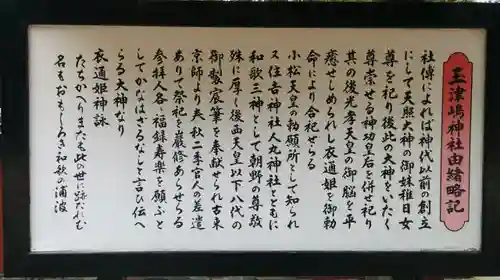 玉津嶋神社由緒略記
社傳によれば神代以前の創立
にして天照大神の御妹稚日女
尊を祀り後此の大神をいたく
尊崇せる神功皇后を併せ祀り
其の後光孝天皇の御脳を平
癒せしめられし衣通姫を御勅
命により合祀せらる
小松天皇の勅願所として知られ
又住吉神社人丸神社とともに
和歌三神として朝野の尊敬
殊に厚く後西天皇以下八代の
御製宸筆を奉献せられ古東
京師より春秋二季官人の差遣
ありて祭祀を厳修あらせらる
参拝人各々福録寿楽を願ふと
してかなはざるなしと言ひ伝へ
らる大神なり
衣通姫神詠
たちかへりまたも此の世に跡たれむ
名もおもしろき和歌の浦波